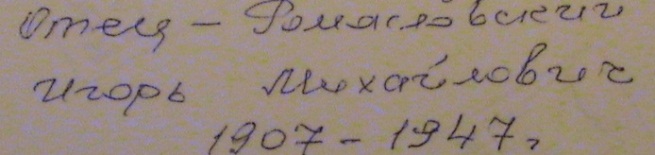 Отец – Ромасловский
Игорь Михайлович
1907 – 1947,